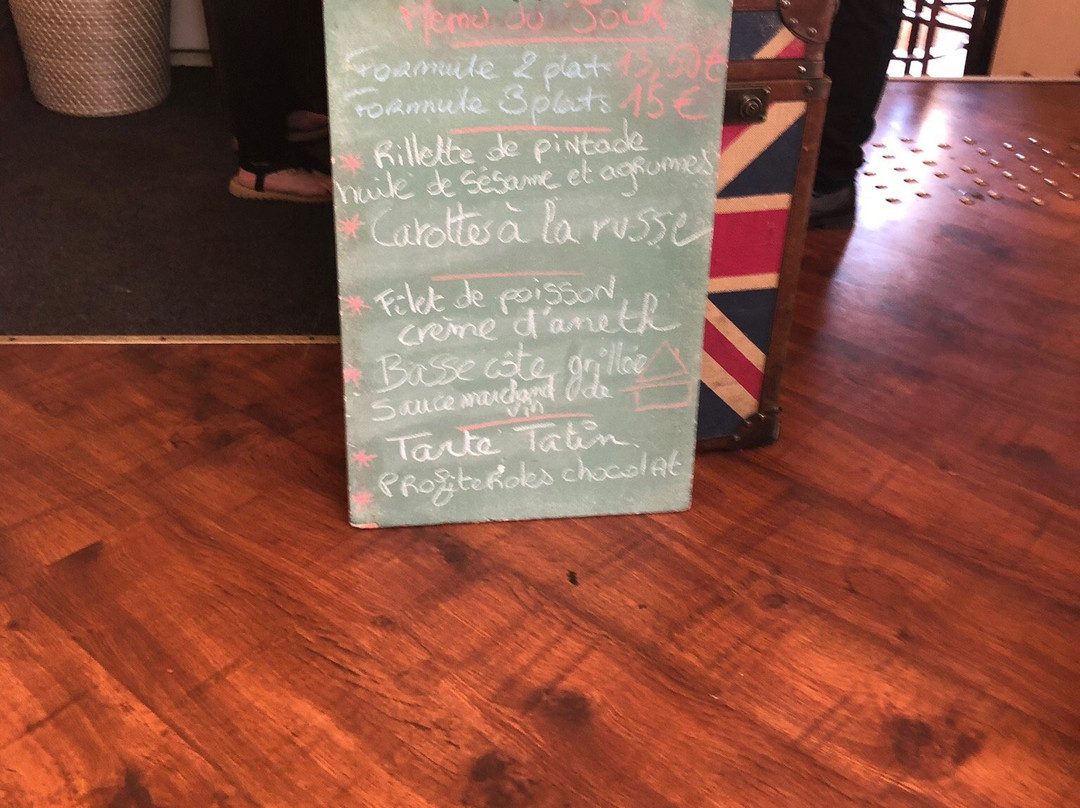 Menu du Jour
Formule 2 plats 13,50€
Formule 3 plats 15€
* Rillette de pintade
huile de sésame et agrumes
* Carottes à la russe
* Filet de poisson
crème d'aneth
* Basse côte grillée
Sauce marchand de
vin
* Tarte Tatin.
* Profiteroles chocolat